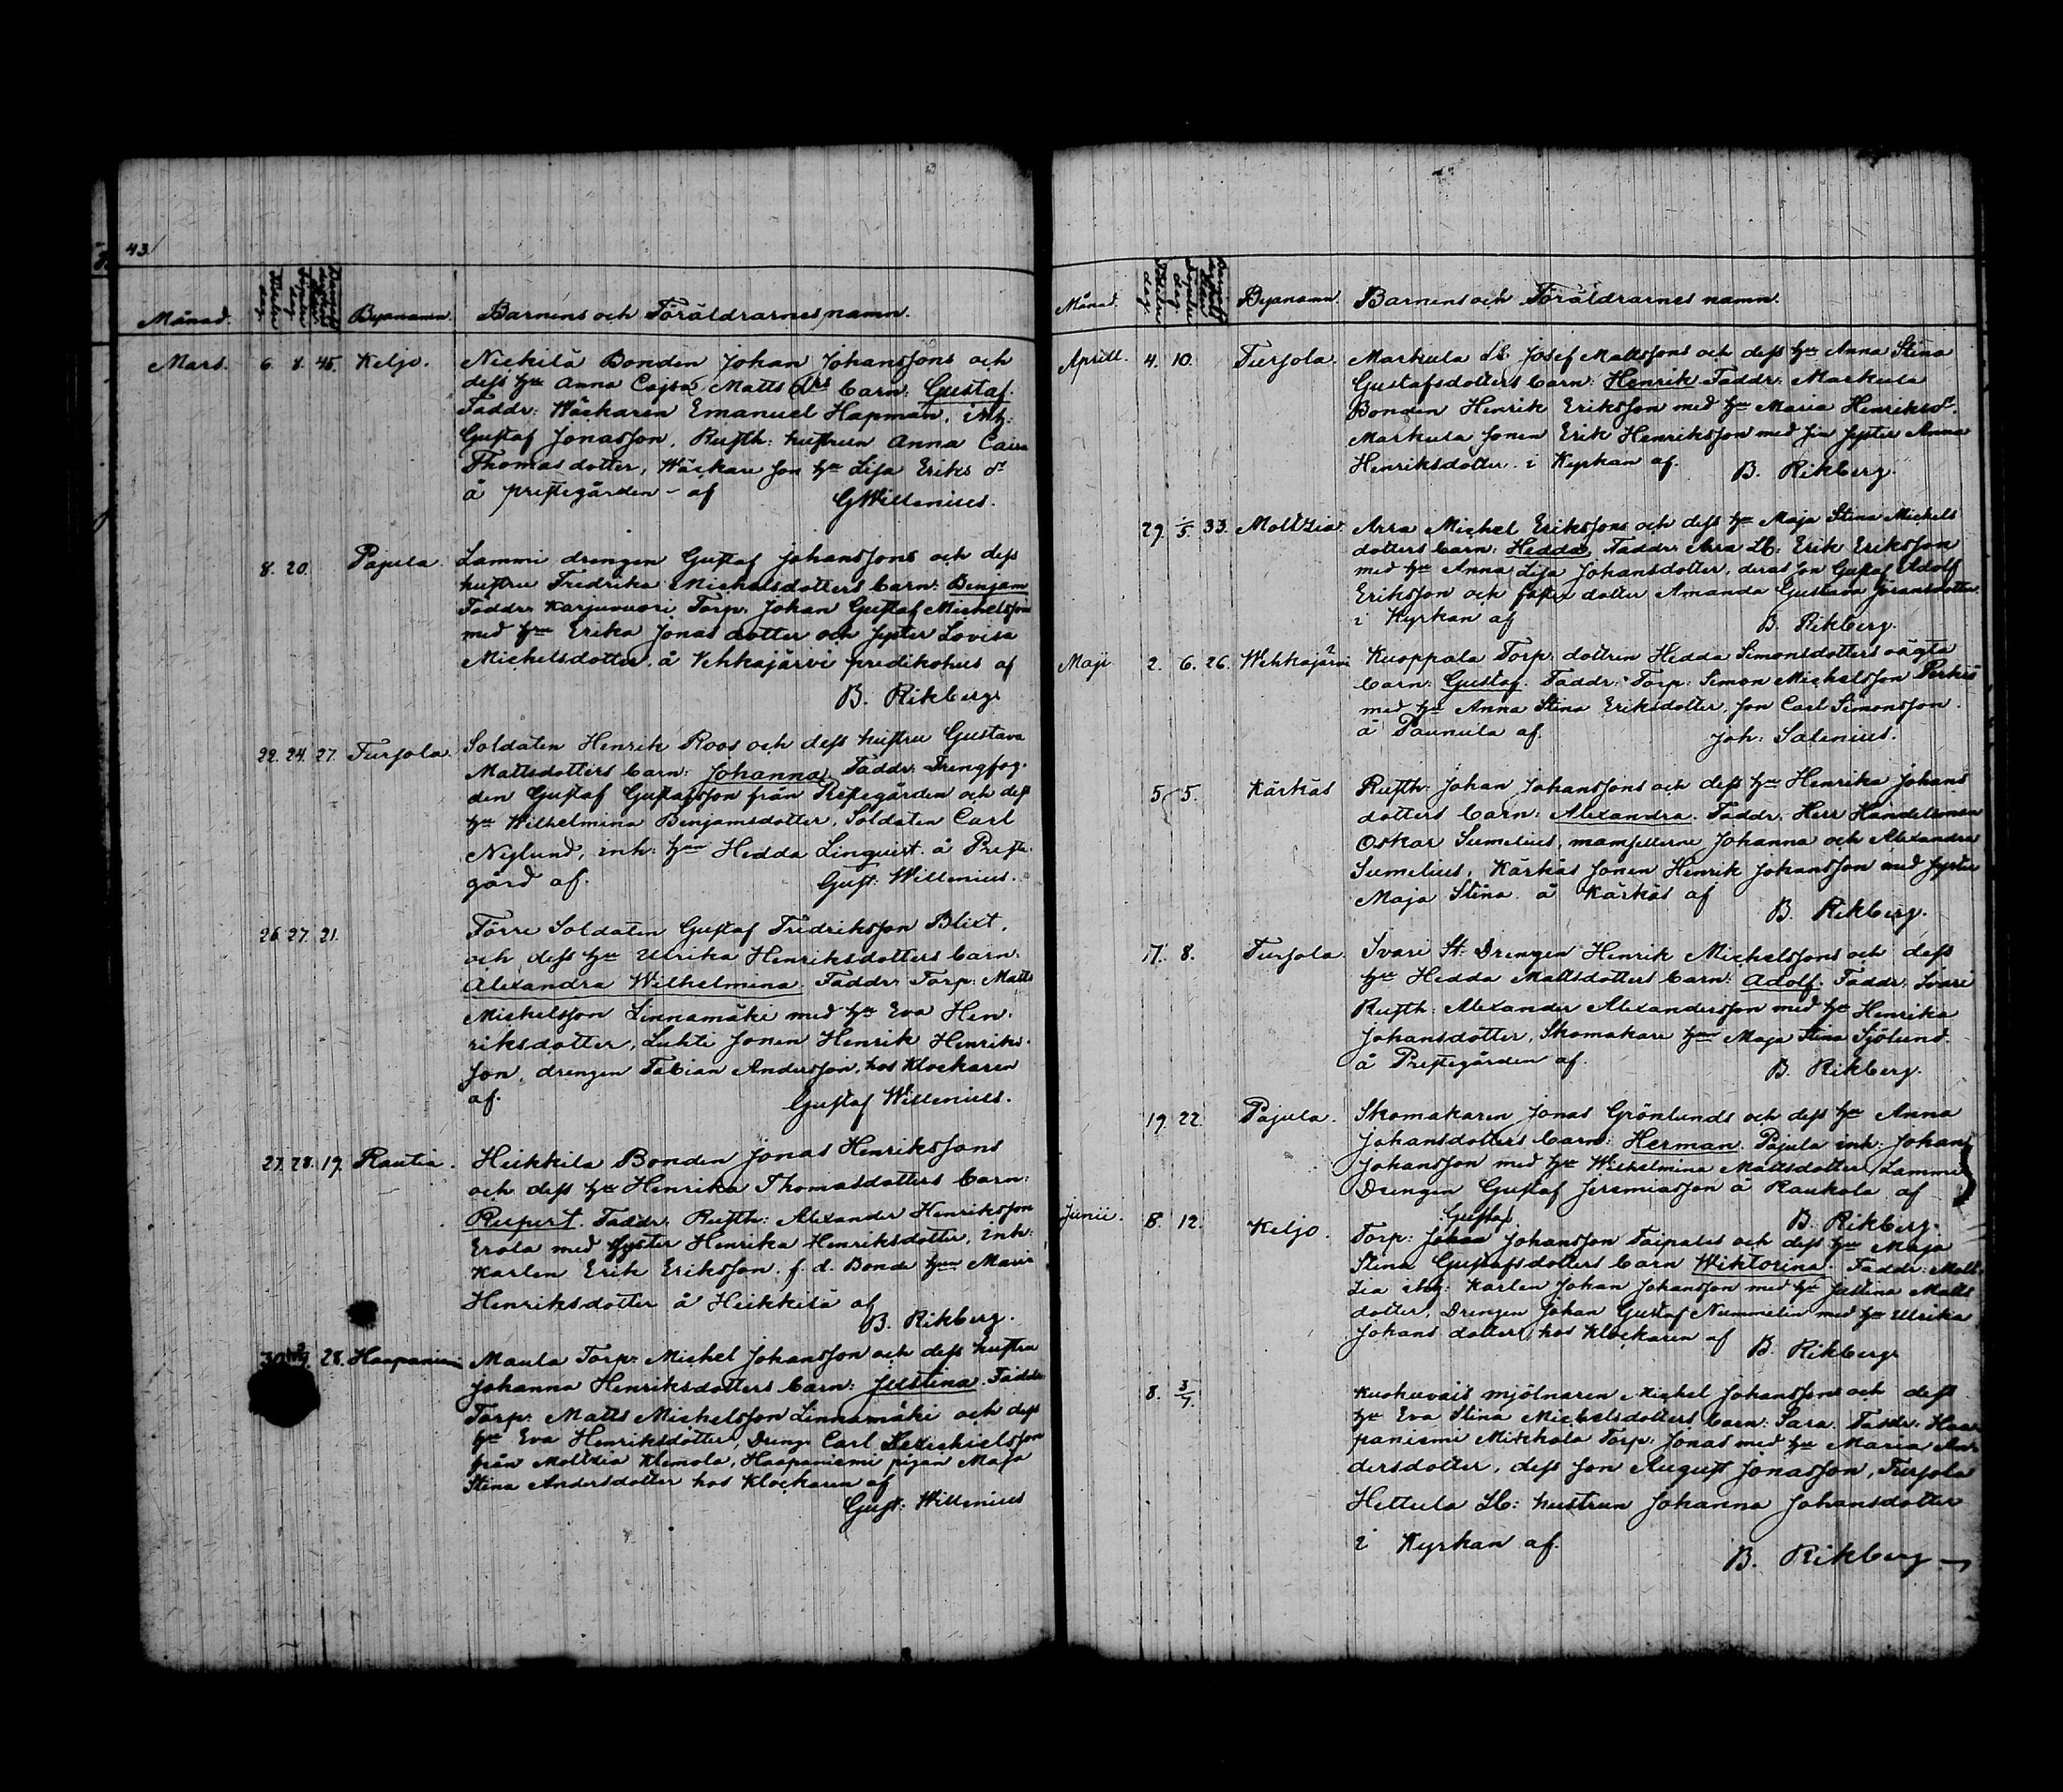 43
Månad. Byanamn. Barnens och Föräldrarnes namn.
Mars. 6. 8. 45. Keljo. Nickilä Bonden Johan Johanssons och
dess hu Anna Cajsa Matts drs barn: Gustaf.
Faddr: Wäckaren Emanuel Hapman, inh:
Gustaf Jonasson, Rusth: hustrun Anna Caisa
Thomasdotter, Wäckare son hu Lisa Eriks dr
å prestegården - af GWillenius.
8. 20. Pajula Lammi drengen Gustaf Johanssons och dess
hustru Fredrika Michelsdotters barn: Benjam
Faddr: Karjuvuori Torp: Johan Gustaf Michelsson
med hru Erika Jonas dotter och syster Lovisa
Michelsdotter å Vehkajärvi predikohus af
B. Rikberg.
22. 24. 27. Turjola. Soldaten Henrik Roos och dess hustru Gustava
Mattsdotters barn: Johanna Faddr: Drengfog-
den Gustaf Gustafsson från Prestegården och dess
hu Wilhelmina Benjamsdotter, Soldaten Carl
Nylund, inh: hru Hedda Linquist å Preste
gård af. Gust: Willenius.
26. 27. 21. Förre Soldaten Gustaf Fredriksson Blixt,
och dess hu Ulrika Henriksdotters barn:
Alexandra Wilhelmina Faddr: Torp: Matts
Michelsson Linnamäki med hu Eva Hen-
riksdotter, Luhti sonen Henrik Henriks-
son, drengen Fabian Andersson, hos Klockaren
af. Gustaf Willenius.
27. 28. 19. Rautia. Heikkilä Bonden Jonas Henrikssons
och dess hu Henrika Thomasdotters barn:
Rupert. Faddr: Rusth: Alexander Henriksson
Erola med syster Henrika Henriksdotter, inh:
Karlen Erik Eriksson, f. d. Bonde hru Maria
Henriksdotter å Heikkilä af
B. Rikberg.
28. Haapaniemi Maula Torp: Michel Johansson och dess hustru
Johanna Henriksdotters barn: Justina. Faddr:
Torp: Matts Michelsson Linnamäki och dess
hu Eva Henriksdotter, Dreng Carl
från Moltzia Klemola, Haapaniemi pigan Maja
Stina Andersdotter hos Klockaren af
Gust: Willenius
Månad. Byanamn. Barnens och Föräldrarnes namn.
Aprill. 4. 10. Turjola. Markula Josef Mattssons och dess hu Anna Stina
Gustafsdotters barn: Henrik Faddr: Markula
Bonden Henrik Eriksson med hu Maria Henriksdr.
Markula sonen Erik Henriksson med sin syster Anna
Henriksdotter i Kyrkan af. B. Rikberg.
29. 1/5 33. Moltzia Arra Michel Erikssons och dess hu Maja Stina Michels
dotters barn: Hedda, Faddr: Arra Lb: Erik Eriksson
med hu Anna Lisa Johansdotter, deras son Gustaf Adolf
Eriksson och dotter Amanda Gustava Göransdotter
i Kyrkan af B. Rikberg.
Maji 2. 6. 26. Wehkajärvi Kuoppala Torp: dottren Hedda Simonsdotters oägta
barn: Gustaf. Faddr: Torp: Simon Michelsson
med hu Anna Stina Eriksdotter, son Carl Simonsson.
å Paunula af. Joh: Salenius.
5. 5. Kärkäs Rusth: Johan Johanssons och dess hu Henrika Johans
dotters barn: Alexandra. Faddr: Herr Handelsman
Oskar Sumelius, mamsellerne Johanna och Alexandra
Sumelius, Kärkäs sonen Henrik Johansson med syster
Maja Stina å Kärkäs af
B. Rikberg.
17. 8. Turjola Svari St: Drengen Henrik Michelssons och dess
hu Hedda Mattsdotters barn: Adolf. Faddr: Svari
Rusth: Alexander Alexandersson med hu Henrika
Johansdotter, Skomakare hru Maja Stina Sjölund.
å Prestegården af. B. Rikberg.
19. 22. Pajula. Skomakaren Jonas Grönlunds och dess hu Anna
Johansdotters barn: Herman. Pajula inh: Johan
Johansson med hu Wilhelmina Mattsdotter, Lammi
Drengen Gustaf Jeremiasson å Raukola af
B. Rikberg.
Gustaf
Junii. 8. 12. Keljo. Torp: Johan Johansson Taipales och dess hu Maja
Stina Gustafsdotters barn Wiktorina. Faddr: Molt-
zia inh: Karlen Johan Johansson med hu Justina Matts
dotter, Drengen Johan Gustaf Nummelin med hu Ulrika
Johans dotter, hos Klockaren af B. Rikberg
8. 3/7. Kuohuvais mjölnaren Michel Johanssons och dess
hu Eva Stina Michelsdotters barn: Sara. Faddr: Haa-
paniemi Mikkola Torp: Jonas med hu Maria An-
dersdotter, dess son August Jonasson, Turjola
Hettula Lb: hustrun Johanna Johansdotter
i Kyrkan af.
B. Rikberg